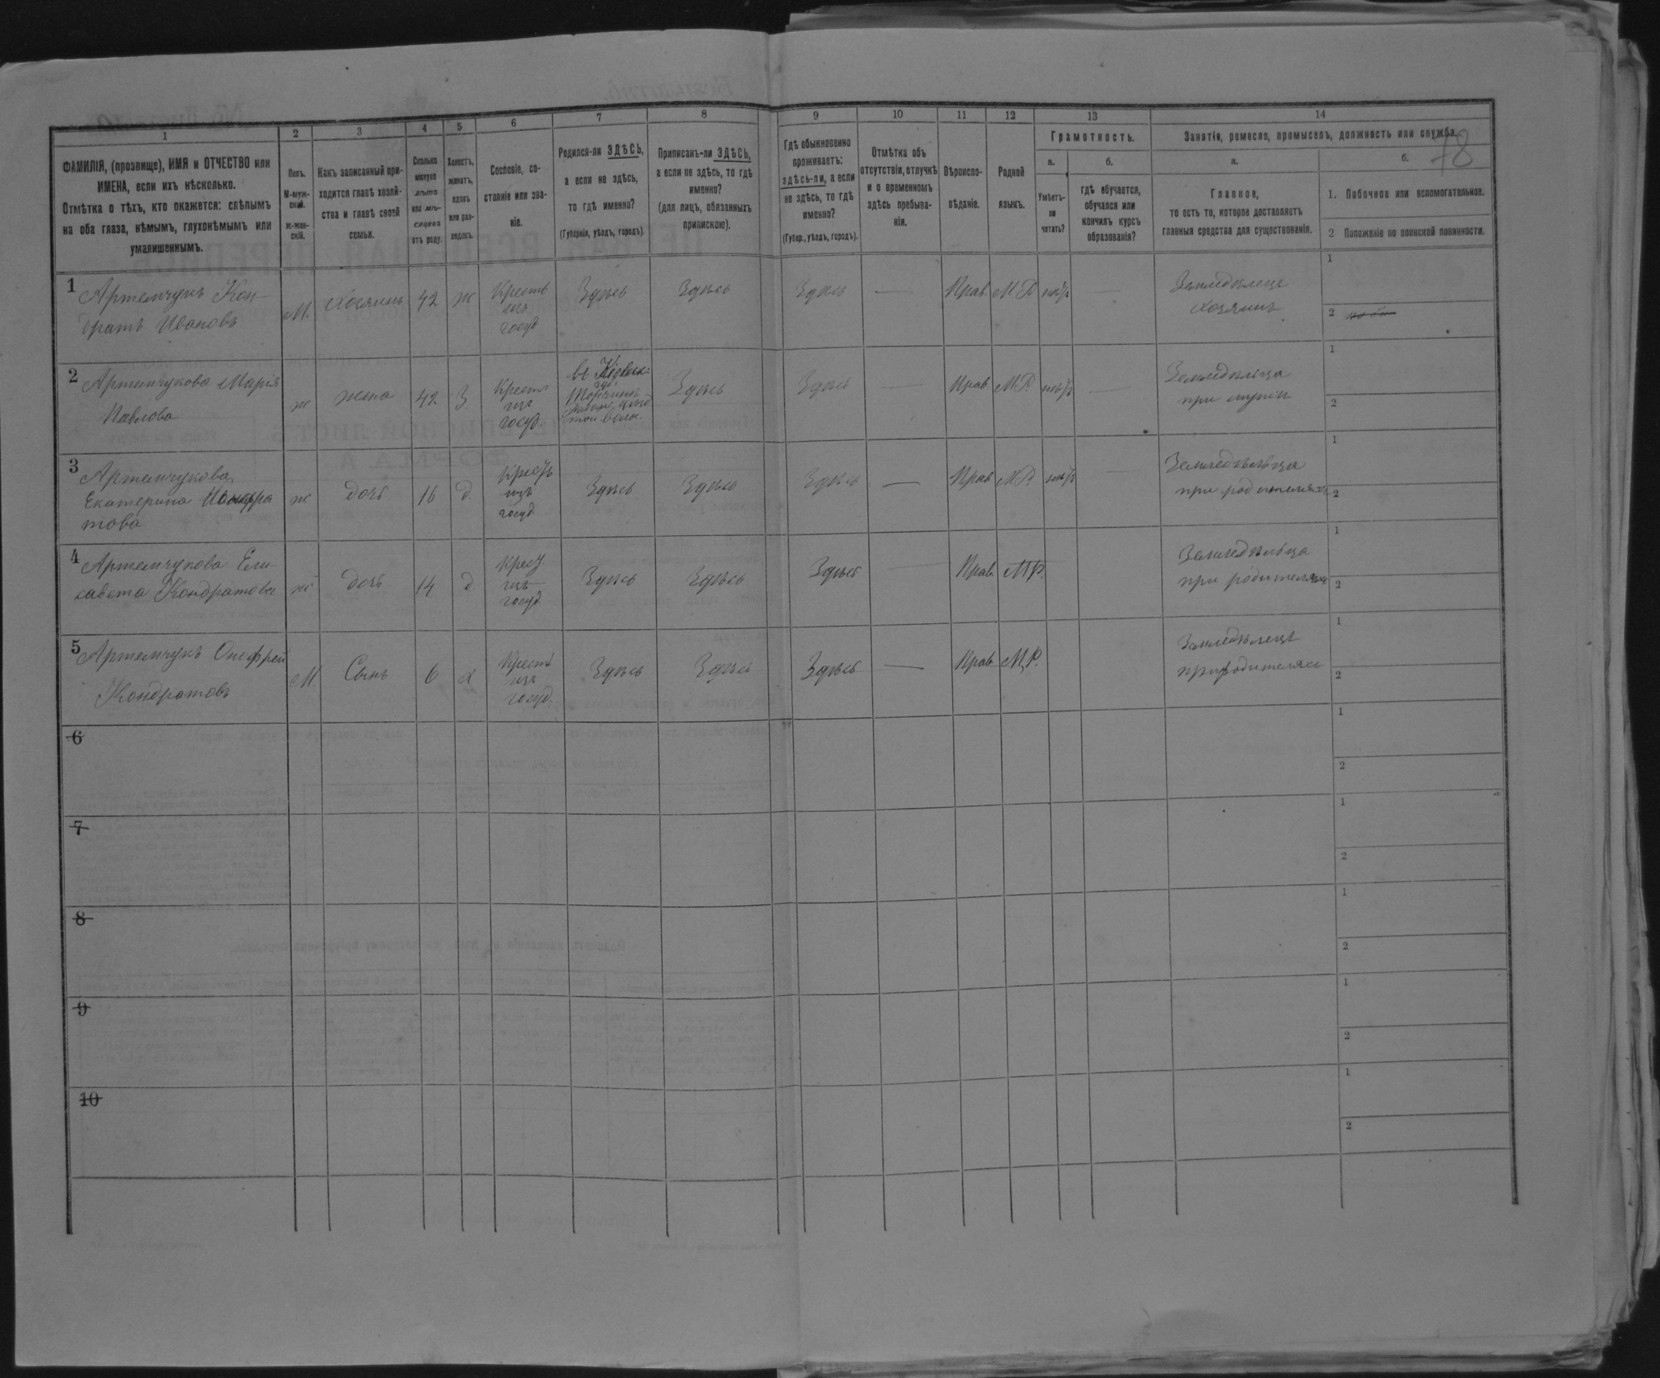 78
1 2 3 4 5 6 7 8 9 10 11 12 13 14
ФАМИЛІЯ, (прозвище), ИМЯ и ОТЧЕСТВО или
ИМЕНА, если ихъ нѣсколько.
Отмѣтка о тѣхъ, кто окажется: слѣпымъ
на оба глаза, нѣмымъ, глухонѣмымъ или
умалишеннымъ.
Полъ.
М-муж-
ской.
ж-жен-
скій.
Какъ записанный при-
ходится главѣ хозяй-
ства и главѣ своей
семьи.
Сколько
минуло
лѣтъ
или мѣ-
сяцевъ
отъ роду.
Холостъ,
женатъ,
вдовъ
или раз-
веденъ.
Сословіе, со-
стояніе или зва-
ніе.
Родился-ли ЗДѢСЬ,
а если не здѣсь,
то гдѣ именно?
(Губернія, уѣздъ, городъ).
Приписанъ-ли ЗДѢСЬ,
а если не здѣсь, то гдѣ
именно?
(для лицъ, обязанныхъ
припискою).
Гдѣ обыкновенно
проживаетъ:
здѣсь-ли, а если
не здѣсь, то гдѣ
именно?
(Губер., уѣздъ, городъ).
Отмѣтка объ
отсутствіи, отлучкѣ
и о временномъ
здѣсь пребыва-
ніи.
Вѣроиспо-
вѣданіе.
Родной
языкъ.
Грамотность.
а.
Умѣетъ-
ли
читать?
б.
гдѣ обучается,
обучался или
кончилъ курсъ
образованія?
Занятіе, ремесло, промыселъ, должность или служба.
а.
Главное,
то есть то, которое доставляетъ
главныя средства для существованія.
б.
1. Побочное или вспомогательное.
2 Положеніе по воинской повинности.
1 Артемчукъ Кон-
дратъ Ивановъ
М. хозяинъ 42 ж
Крестъ
изъ
госуд
Здѣсь Здѣсь Здѣсь — Прав М.Р. —
Земледѣлецъ
хозяинъ
1
2
2 Артемчукова Марія
Павлова
ж жена 42 З
Крест
изъ
госуд
Здѣсь Здѣсь — Прав М.Р. —
Земледѣлица
при мужѣ
1
2
3 Артемчукова
Екатерина
това
ж дочь 16 д
Крестъ
изъ
госуд
Здѣсь Здѣсь Здѣсь — Прав М.Р. —
Земледѣлица
при родителяхъ
1
2
4 Артемчукова Ели-
савета Кондратова
ж дочь 14 д
Крест
изъ
госуд
Здѣсь Здѣсь Здѣсь — Прав М.Р.
Земледѣлица
при родителяхъ
1
2
5 Артемчукъ Онофрей
Кондратовъ
М Сынъ 6 х
Крестъ
изъ
госуд
Здѣсь Здѣсь Здѣсь — Прав М.Р.
Земледѣлецъ
при родителяхъ
1
2
6
1
2
7
1
2
8
1
2
9
1
2
10
1
2